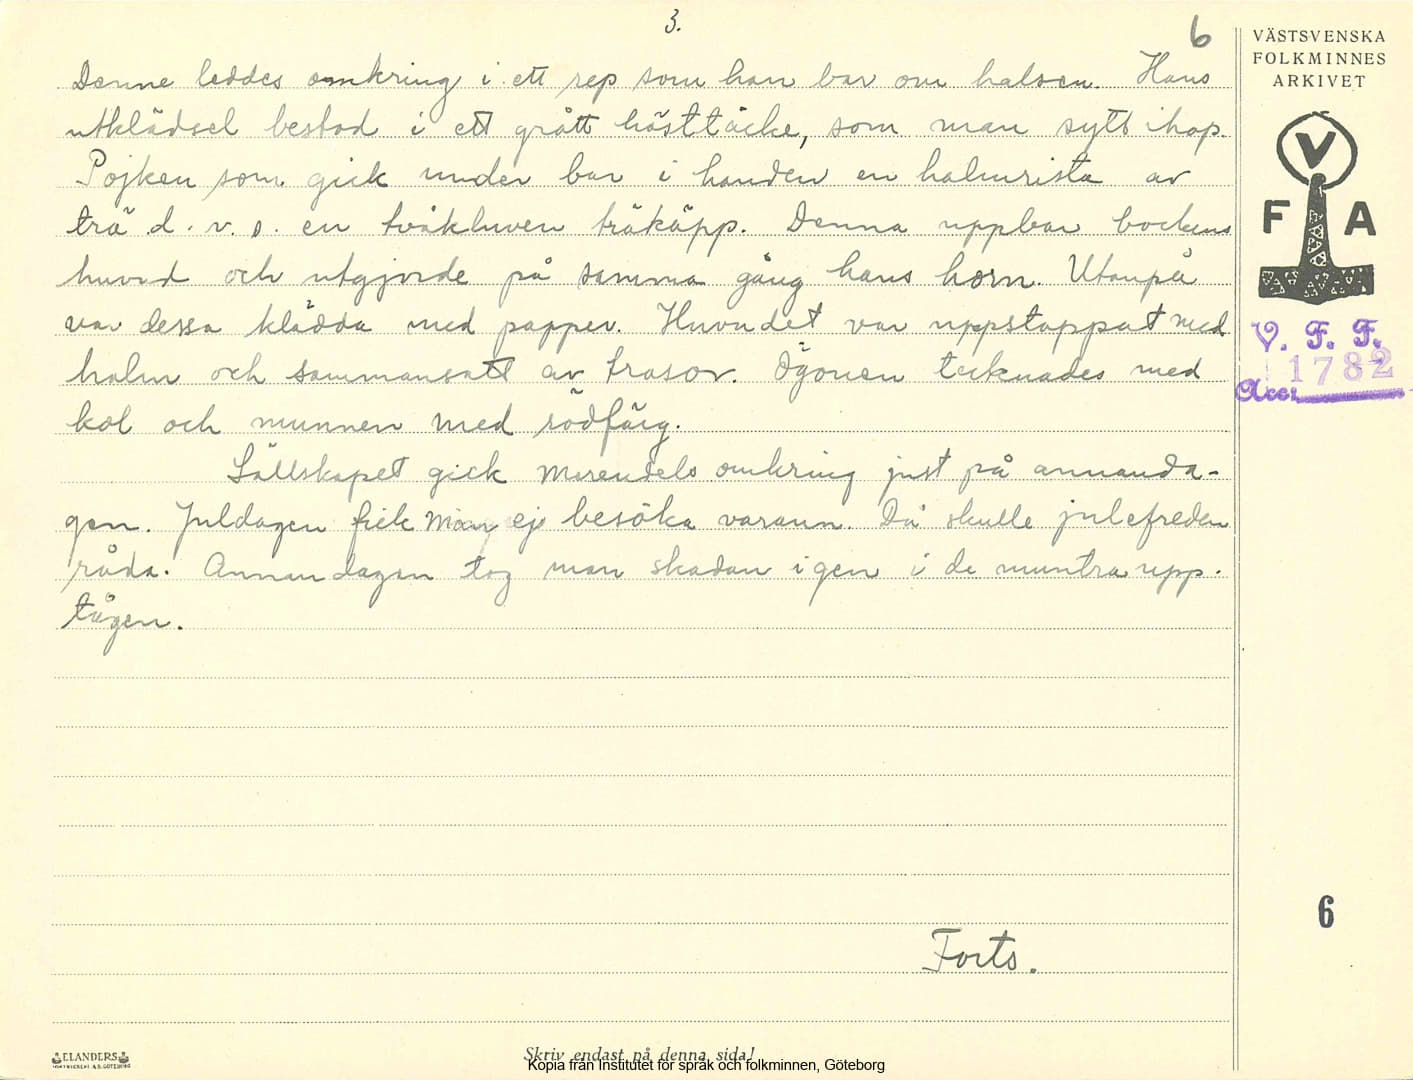 3.
6
Denne leddes omkring i ett rep som han bar om halsen. Hans
utklädsel bestod i ett grått hästtäcke, som man sytt ihop.
Pojken som gick under bar i handen en halmrista av
trä d.v.s. en tvåkluven träkäpp. Denna uppbar bockens
huvud och utgjorde på samma gång hans horn. Utanpå
var dessa klädda med papper. Huvudet var uppstoppat med
halm och sammansatt av trasor. Ögonen tecknades med
kol och munnen med rödfärg.
Sällskapet gick omkring just på annanda-
gen. Juldagen fick man ej besöka varann. Då skulle julefreden
råda. Annandagen tog man skadan igen i de muntra upp-
tågen.
Forts.
VÄSTSVENSKA
FOLKMINNES
ARKIVET
V
F A
V. F. F.
1782
Acc:
6
ELANDERS
Skriv endast på denna sida!
Kopia från Institutet för språk och folkminnen, Göteborg